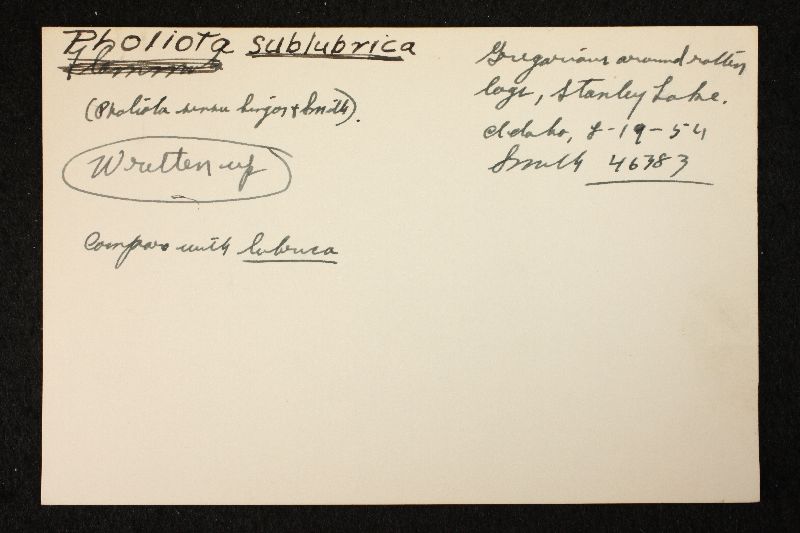 Pholiota sublubrica
(Pholiota sensu Singer & Smith).
Written up
Compare with lubrica
Gregarious around rotten
logs, Stanley Lake.
Idaho, 8-19-54
Smith 46383